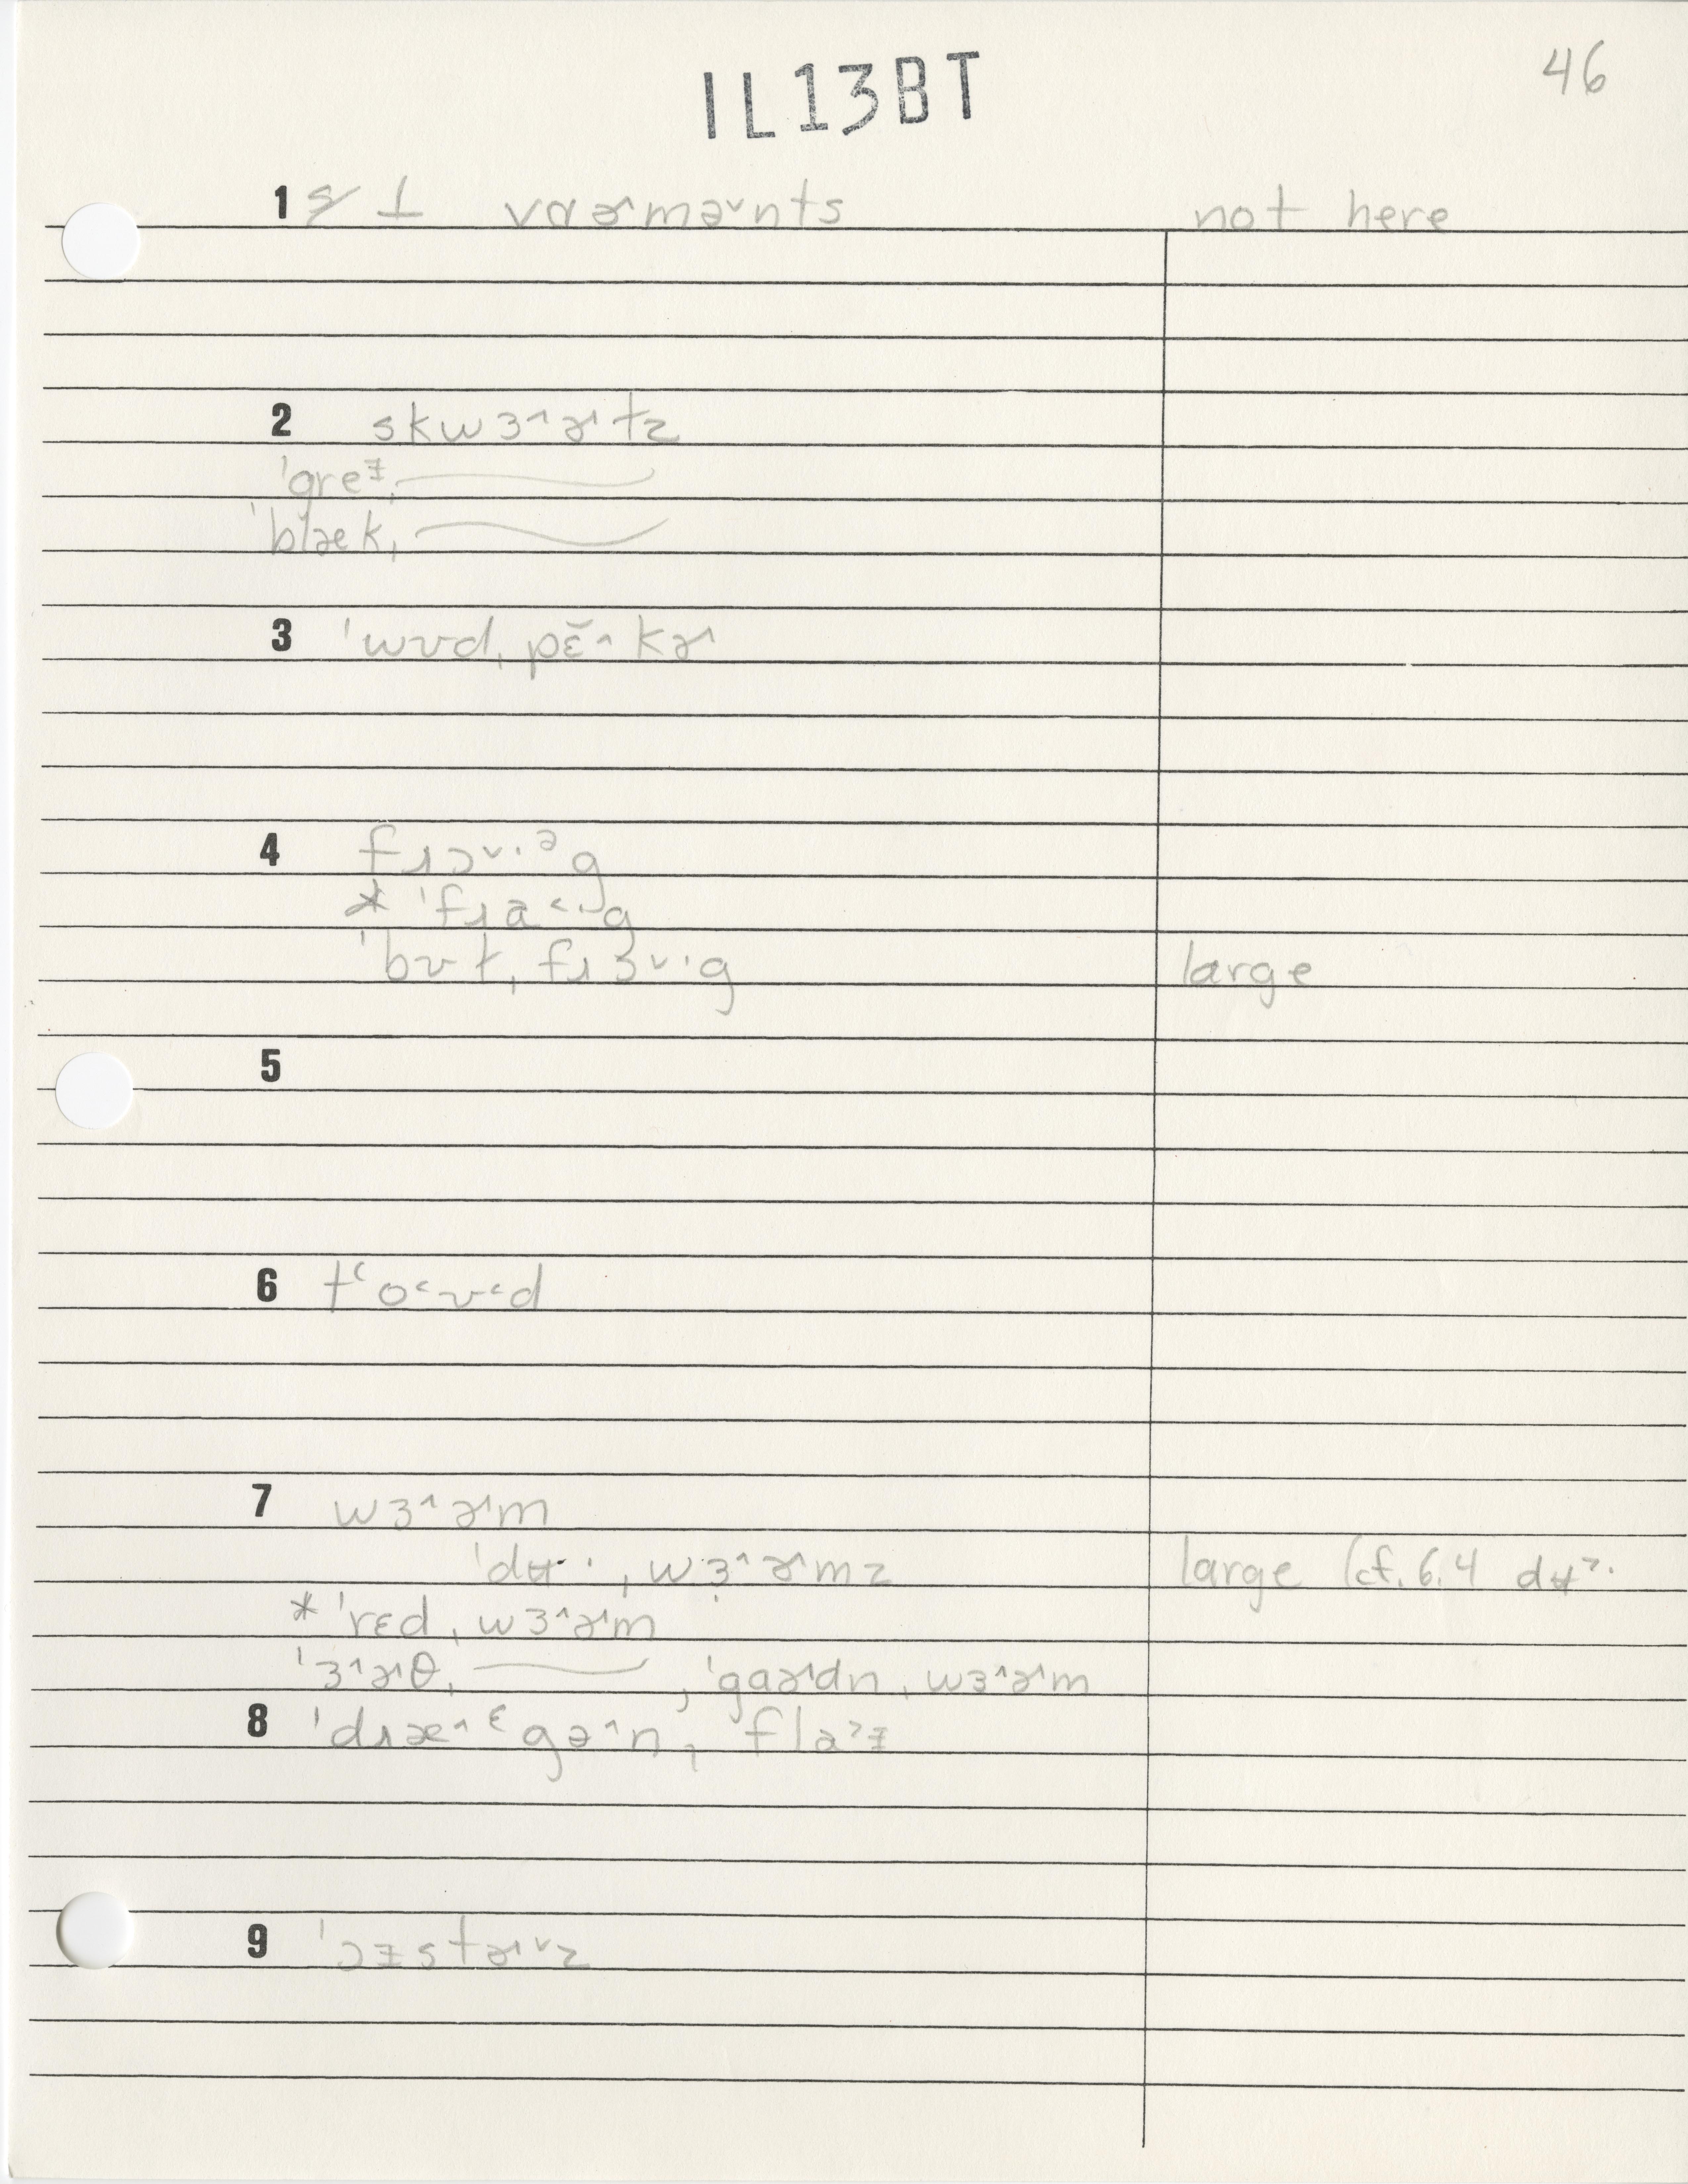 46
IL13BT
1 s/ ⊥ vɑɚmə˅nts not here
2 skwɜ˄ɚtz
'greᵻ,
'blæk,
3 'wʊd, pɛ̆˄kɚ
4 fɹɔ˅·ᵊg
* 'fɹa˂·g
'bʊɫ, fɹɔ˅·g large
5
6 tʻo˂ʊ˂d
7 wɜ˄ɚm
'dʉ·, wɜ˄ɚmz large (cf. 6.4 dʉ˃·
* 'rɛd, wɜ˄ɚm
'ɜ˄ɚθ, , 'gaɚdn, wɜ˄ɚm
8 'dɹæ˄ᵋgə˄n, fla˃ᵻ
9 'ɔᵻstɚ˅z